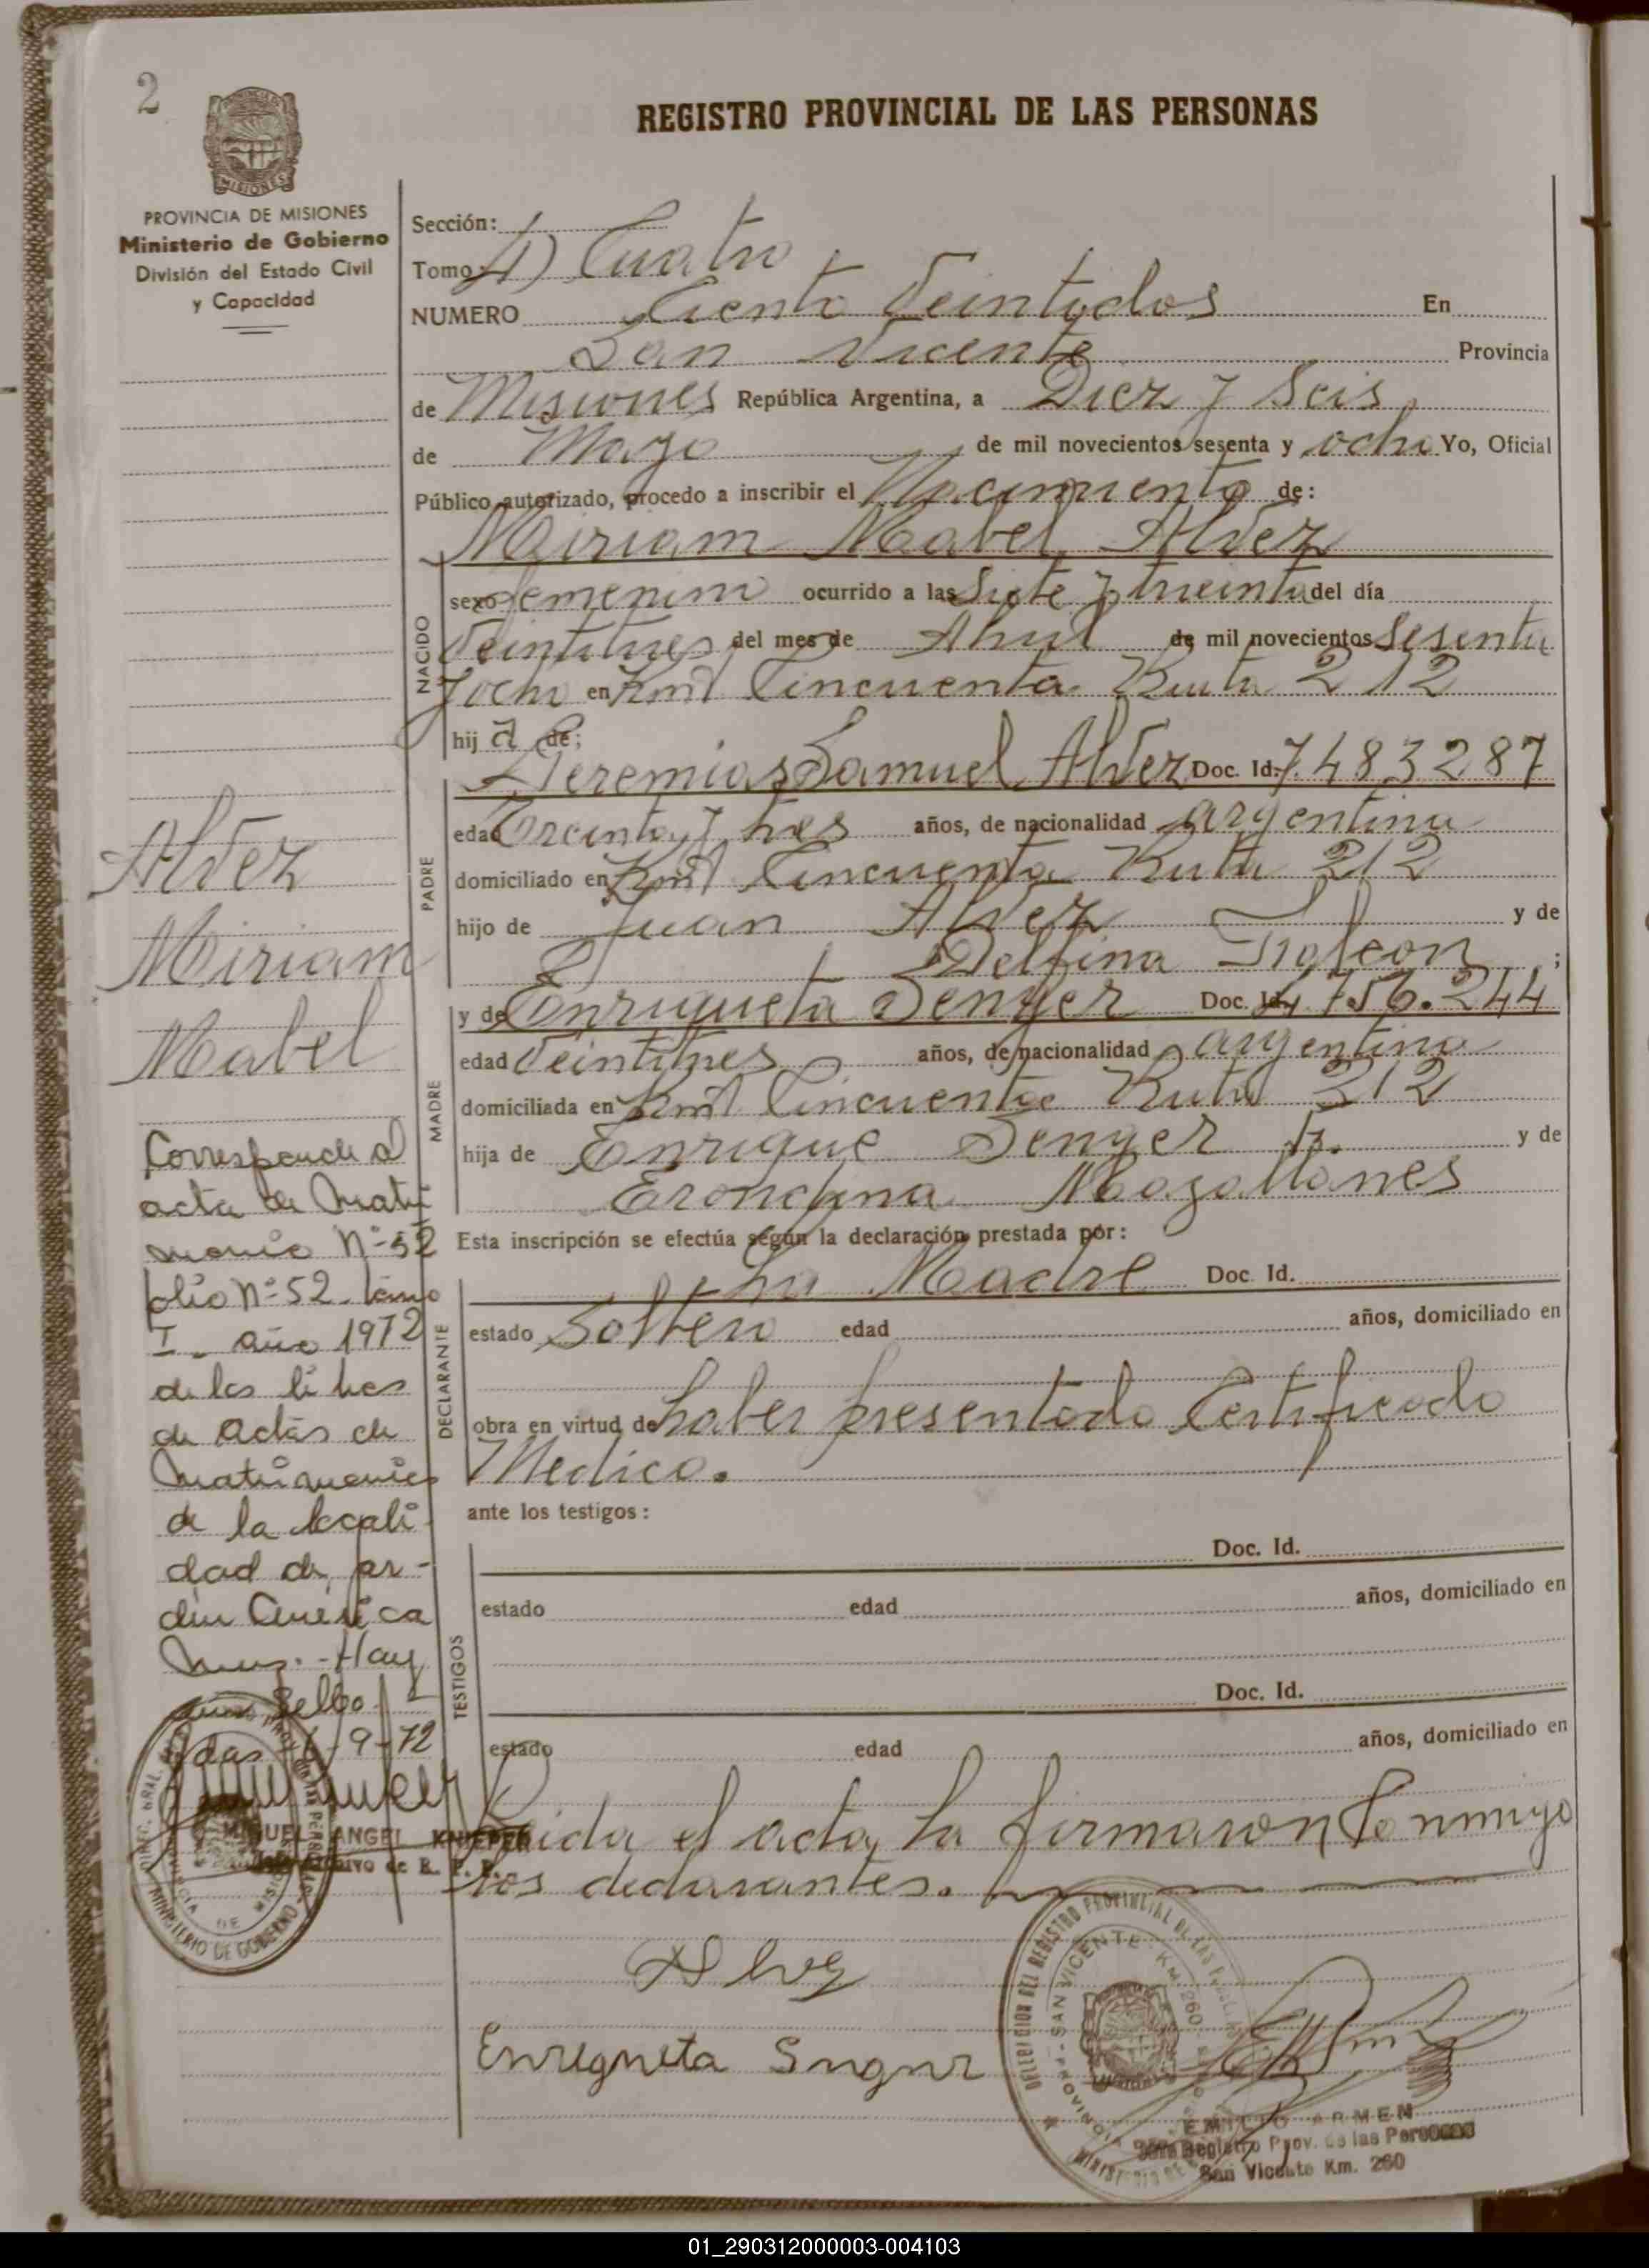 2
REGISTRO PROVINCIAL DE LAS PERSONAS
MISIONES
PROVINCIA DE MISIONES
Ministerio de Gobierno
División del Estado Civil
y Capacidad
Sección:
Tomo: 4) Cuatro
NUMERO Ciento Veintidos En
San Vicente Provincia
de Misiones República Argentina, a Diez y Seis
de Mayo de mil novecientos sesenta y ocho Yo, Oficial
Público autorizado, procedo a inscribir el Nacimiento de:
Miriam Mabel Alvez
NACIDO
sexo femenino ocurrido a las Siete y treinta del día
Veintitres del mes de Abril de mil novecientos Sesenta
y ocho en Kmt Cincuenta Ruta 212
hij a de;
Jeremias Samuel Alvez Doc. Id. 7.483287
PADRE
edad Treinta y tres años, de nacionalidad argentina
domiciliado en Kmt Cincuenta Ruta 212
hijo de Juan Alvez y de
Delfina ;
y de Enriqueta Senger Doc. Id. 4.756.244
MADRE
edad Veintitres años, de nacionalidad argentina
domiciliada en Kmt Cincuenta Ruta 212
hija de Enrique Senger y de
Magallanes
Esta inscripción se efectúa según la declaración prestada por:
La Madre Doc. Id.
DECLARANTE
estado Soltero edad años, domiciliado en
obra en virtud de haber presentado Certificado
Medico.
ante los testigos:
TESTIGOS
Doc. Id.
estado edad años, domiciliado en
Doc. Id.
estado edad años, domiciliado en
Leida el acta, la firmaron Conmigo
los declarantes.
Alvez
Enriqueta
Alvez
Miriam
Mabel
Corresponde al
acta de Matri
monio Nº 52
folio Nº 52 - tomo
I - año 1972
de los libros
de Actas de
Matrimonios
de la locali
dad de Jar-
din America
Mnes. - Hay
Sello.
Pdas -9-72
MIGUEL ANGEL KNIEPER
Jefe Archivo de R. P. P.
MINISTERIO DE GOBIERNO
DELEGACION DEL REGISTRO PROVINCIAL DE LAS PERSONAS
SAN VICENTE - KM. 260
EMILIO ARMEN
Jefe Registro Prov. de las Personas
San Vicente Km. 260
01_290312000003-004103